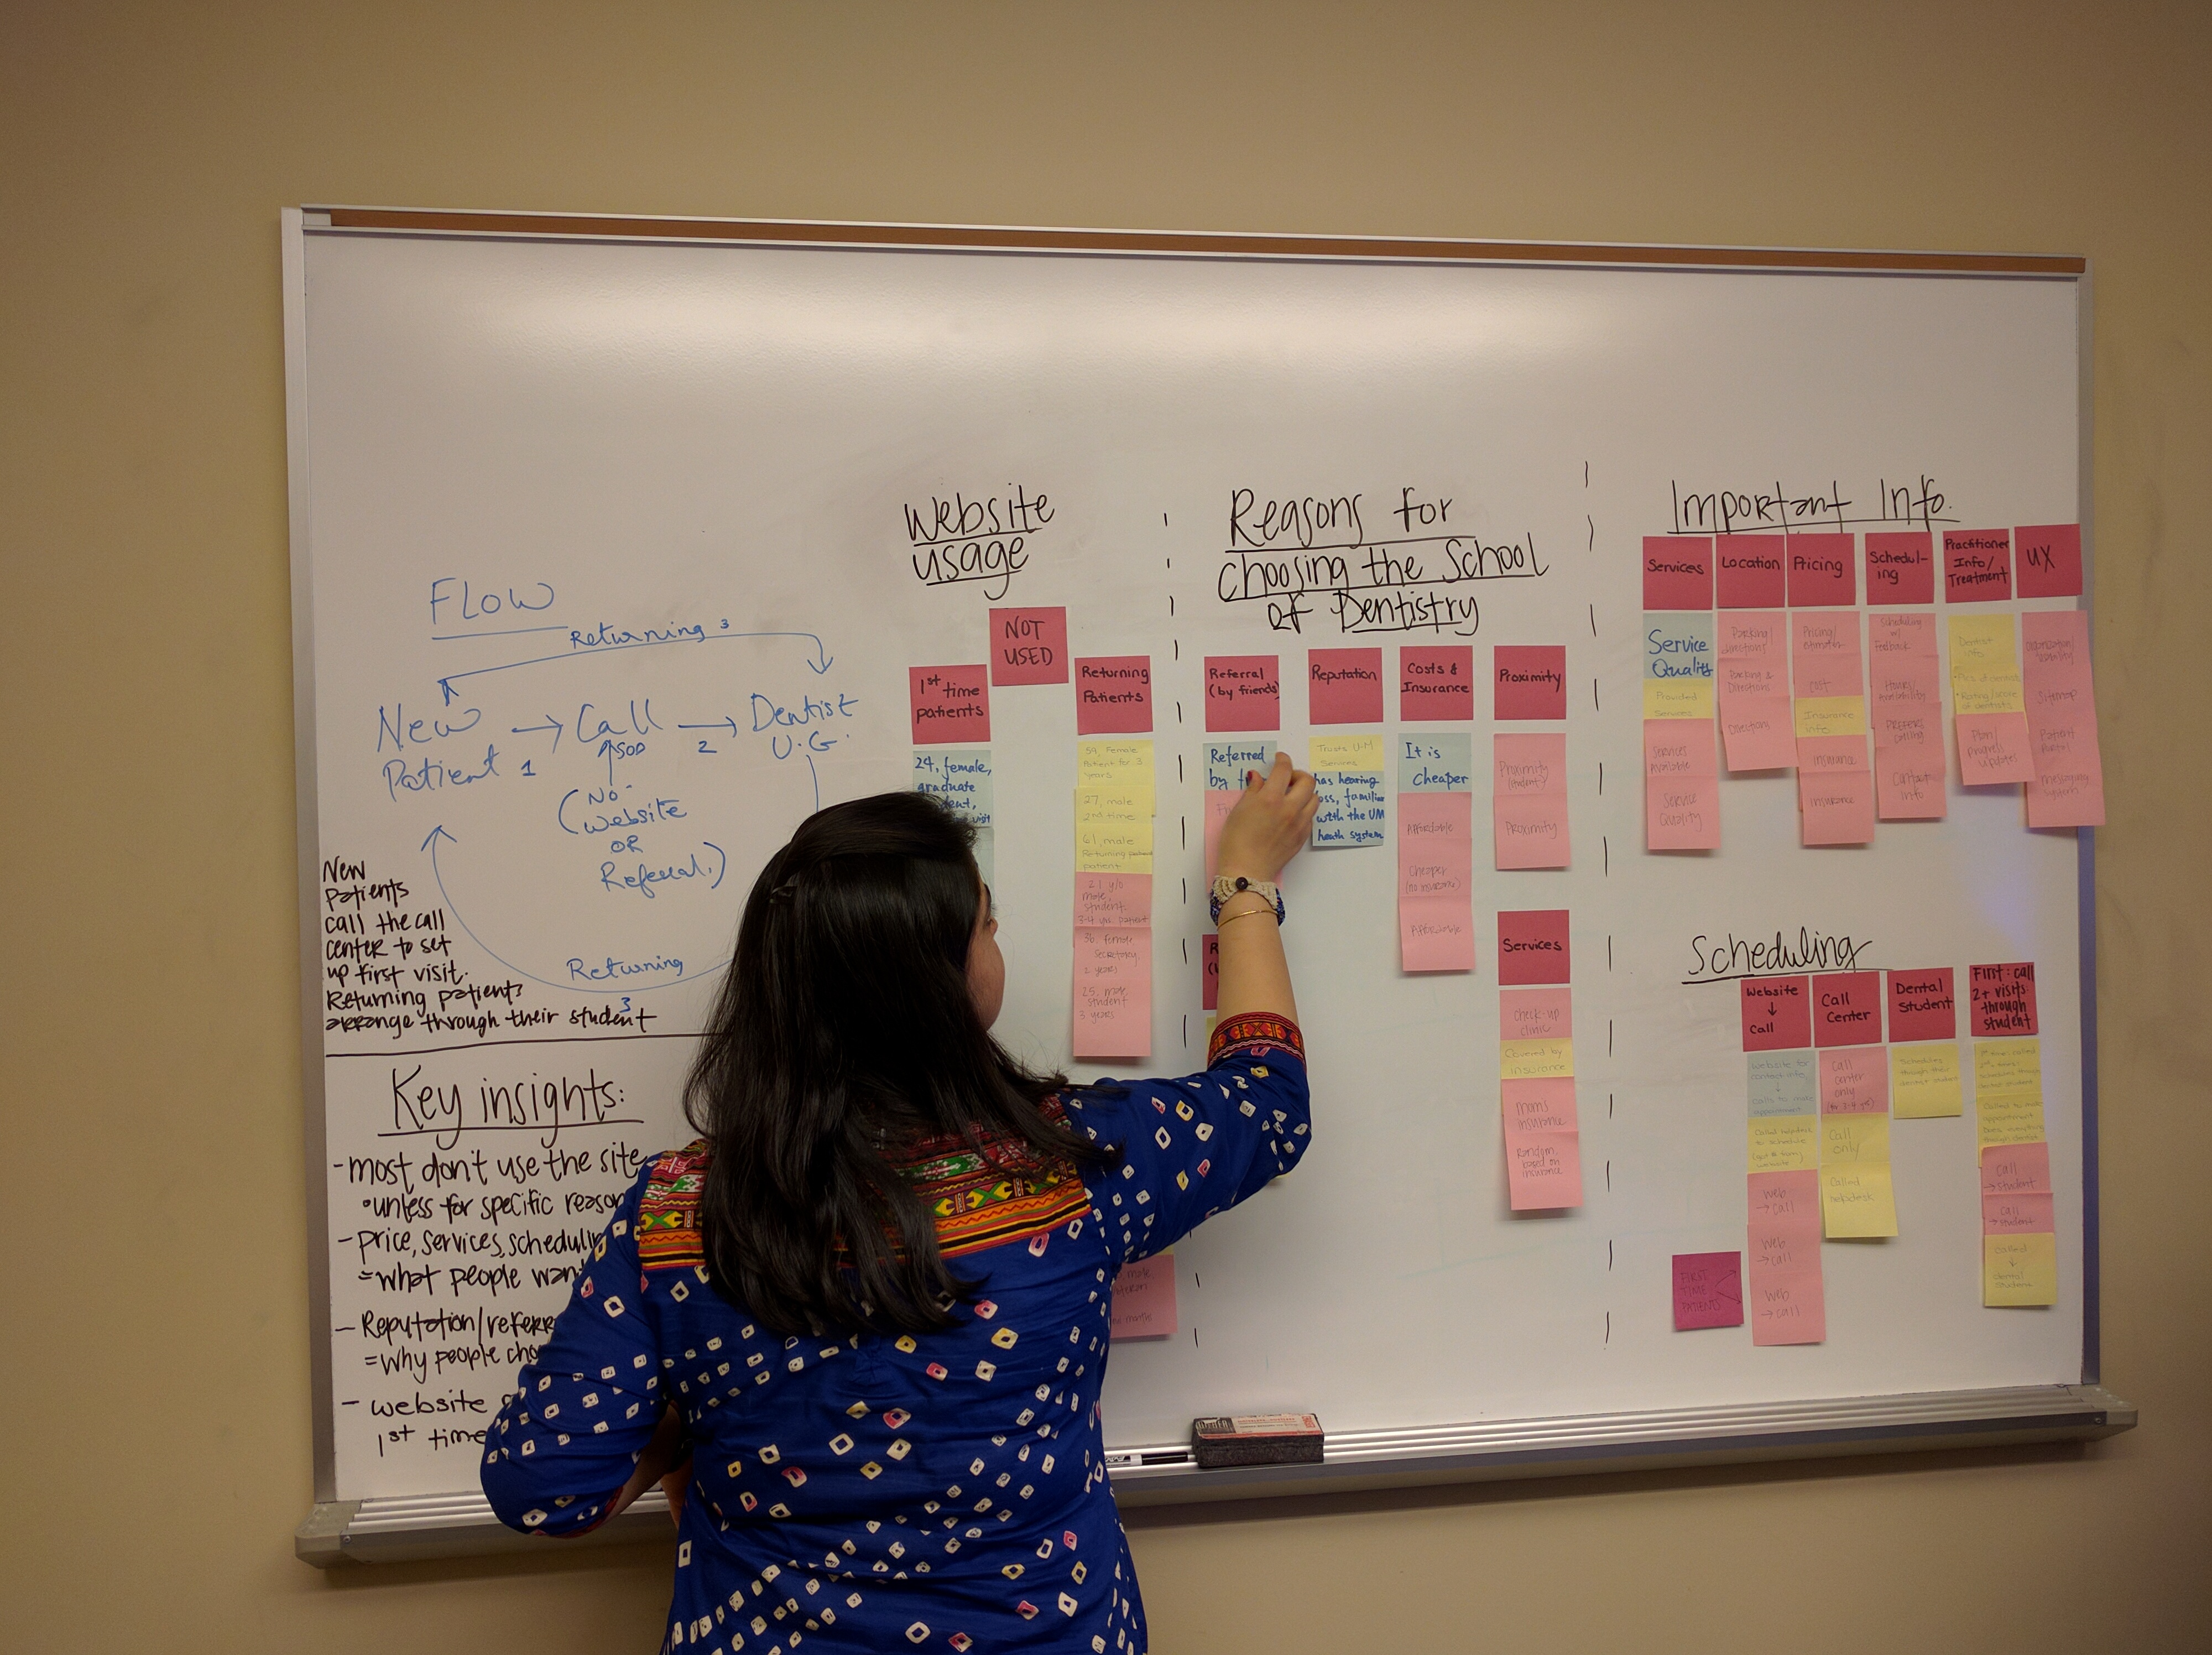 FLOW
Returning 3
New
Patient 1
Call
SOD
2
Dentist
U.G.
(No
website
OR
Referral.)
Returning
3
New
patients
call the call
center to set
up first visit.
Returning patients
arrange through their student
Key insights:
- most don't use the site
unless for specific reason
- price, services,
= what people
- Reputation/
= why people
- website
1st time
Website
usage
NOT
USED
1st time
patients
24, female,
graduate
Returning
Patients
59, Female
Patient for 3
years
27, male
2nd time
61, male
Returning
patient
21 y/o
male,
student
3-4 yr. patient
36, female
Secretary
2 years
25, male,
student
3 years
male
months
Reasons for
choosing the School
of Dentistry
Referral
(by friends)
Referred
by
Reputation
Trusts U-M
Services
has hearing
loss, familiar
with the UM
heath system
Costs &
Insurance
It is
cheaper
Affordable
Cheaper
(no insurance)
Affordable
Proximity
Proximity
(student)
Proximity
Services
check-up
clinic
Covered by
insurance
moms
insurance
Random,
based on
insurance
Important Info.
Services
Service
Quality
Provided
Services
Services
Available
Service
Quality
Location
Parking/
directions
Parking &
Directions
Directions
Pricing
Pricing/
estimates
cost
Insurance
info
insurance
insurance
Schedul-
ing
Scheduling
w/
Feedback
Hours/
Availability
Prefers
calling
Contact
info
Practitioner
Info/
Treatment
Dentist
info
Pics of dentist
Rating/score
of dentists
Plan/
progress
updates
UX
Sitemap
Patient
Portal
messaging
system
Scheduling
Website
↓
Call
website for
contact info
↓
calls to make
appointment
Called helpdesk
to schedule
web
→ call
Web
→ call
Web
→ call
FIRST
TIME
PATIENTS
Call
Center
Call
center
only
(for 3-4 yr)
Call
only
Called
helpdesk
Dental
Student
Schedules
through their
dental student
First: call
2+ visits:
through
student
Called to make
appointment
call
→ student
call
→ student
called
↓
dental
student